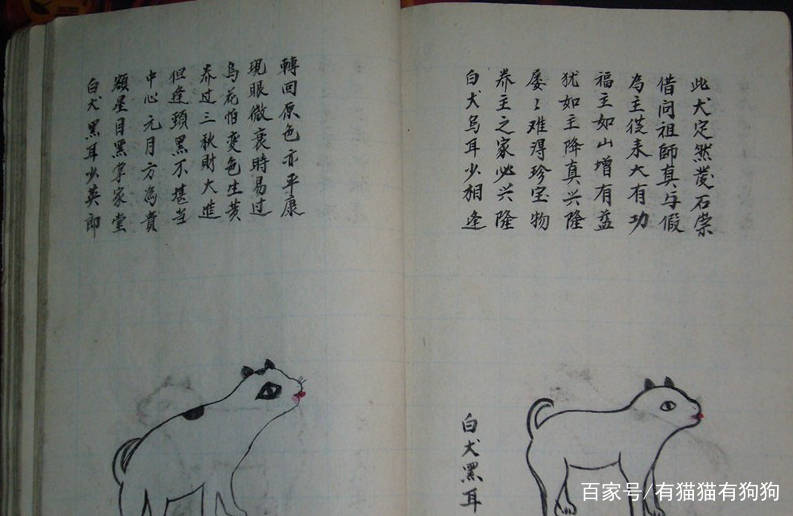 白犬黑耳少英郎
額星目黑掌家堂
中心元月方為貴
但逢頭黑不堪当
养过三秋財大進
烏花怕変色生黄
現眼微衰時易过
轉回原色亦平康
白犬烏耳少相逢
养主之家必兴隆
屡々难得珍宝物
犹如主降真兴隆
福主如山增有益
為主從来大有功
借问祖師真与假
此犬定然發石崇
白犬黑耳
百家号/有猫猫有狗狗